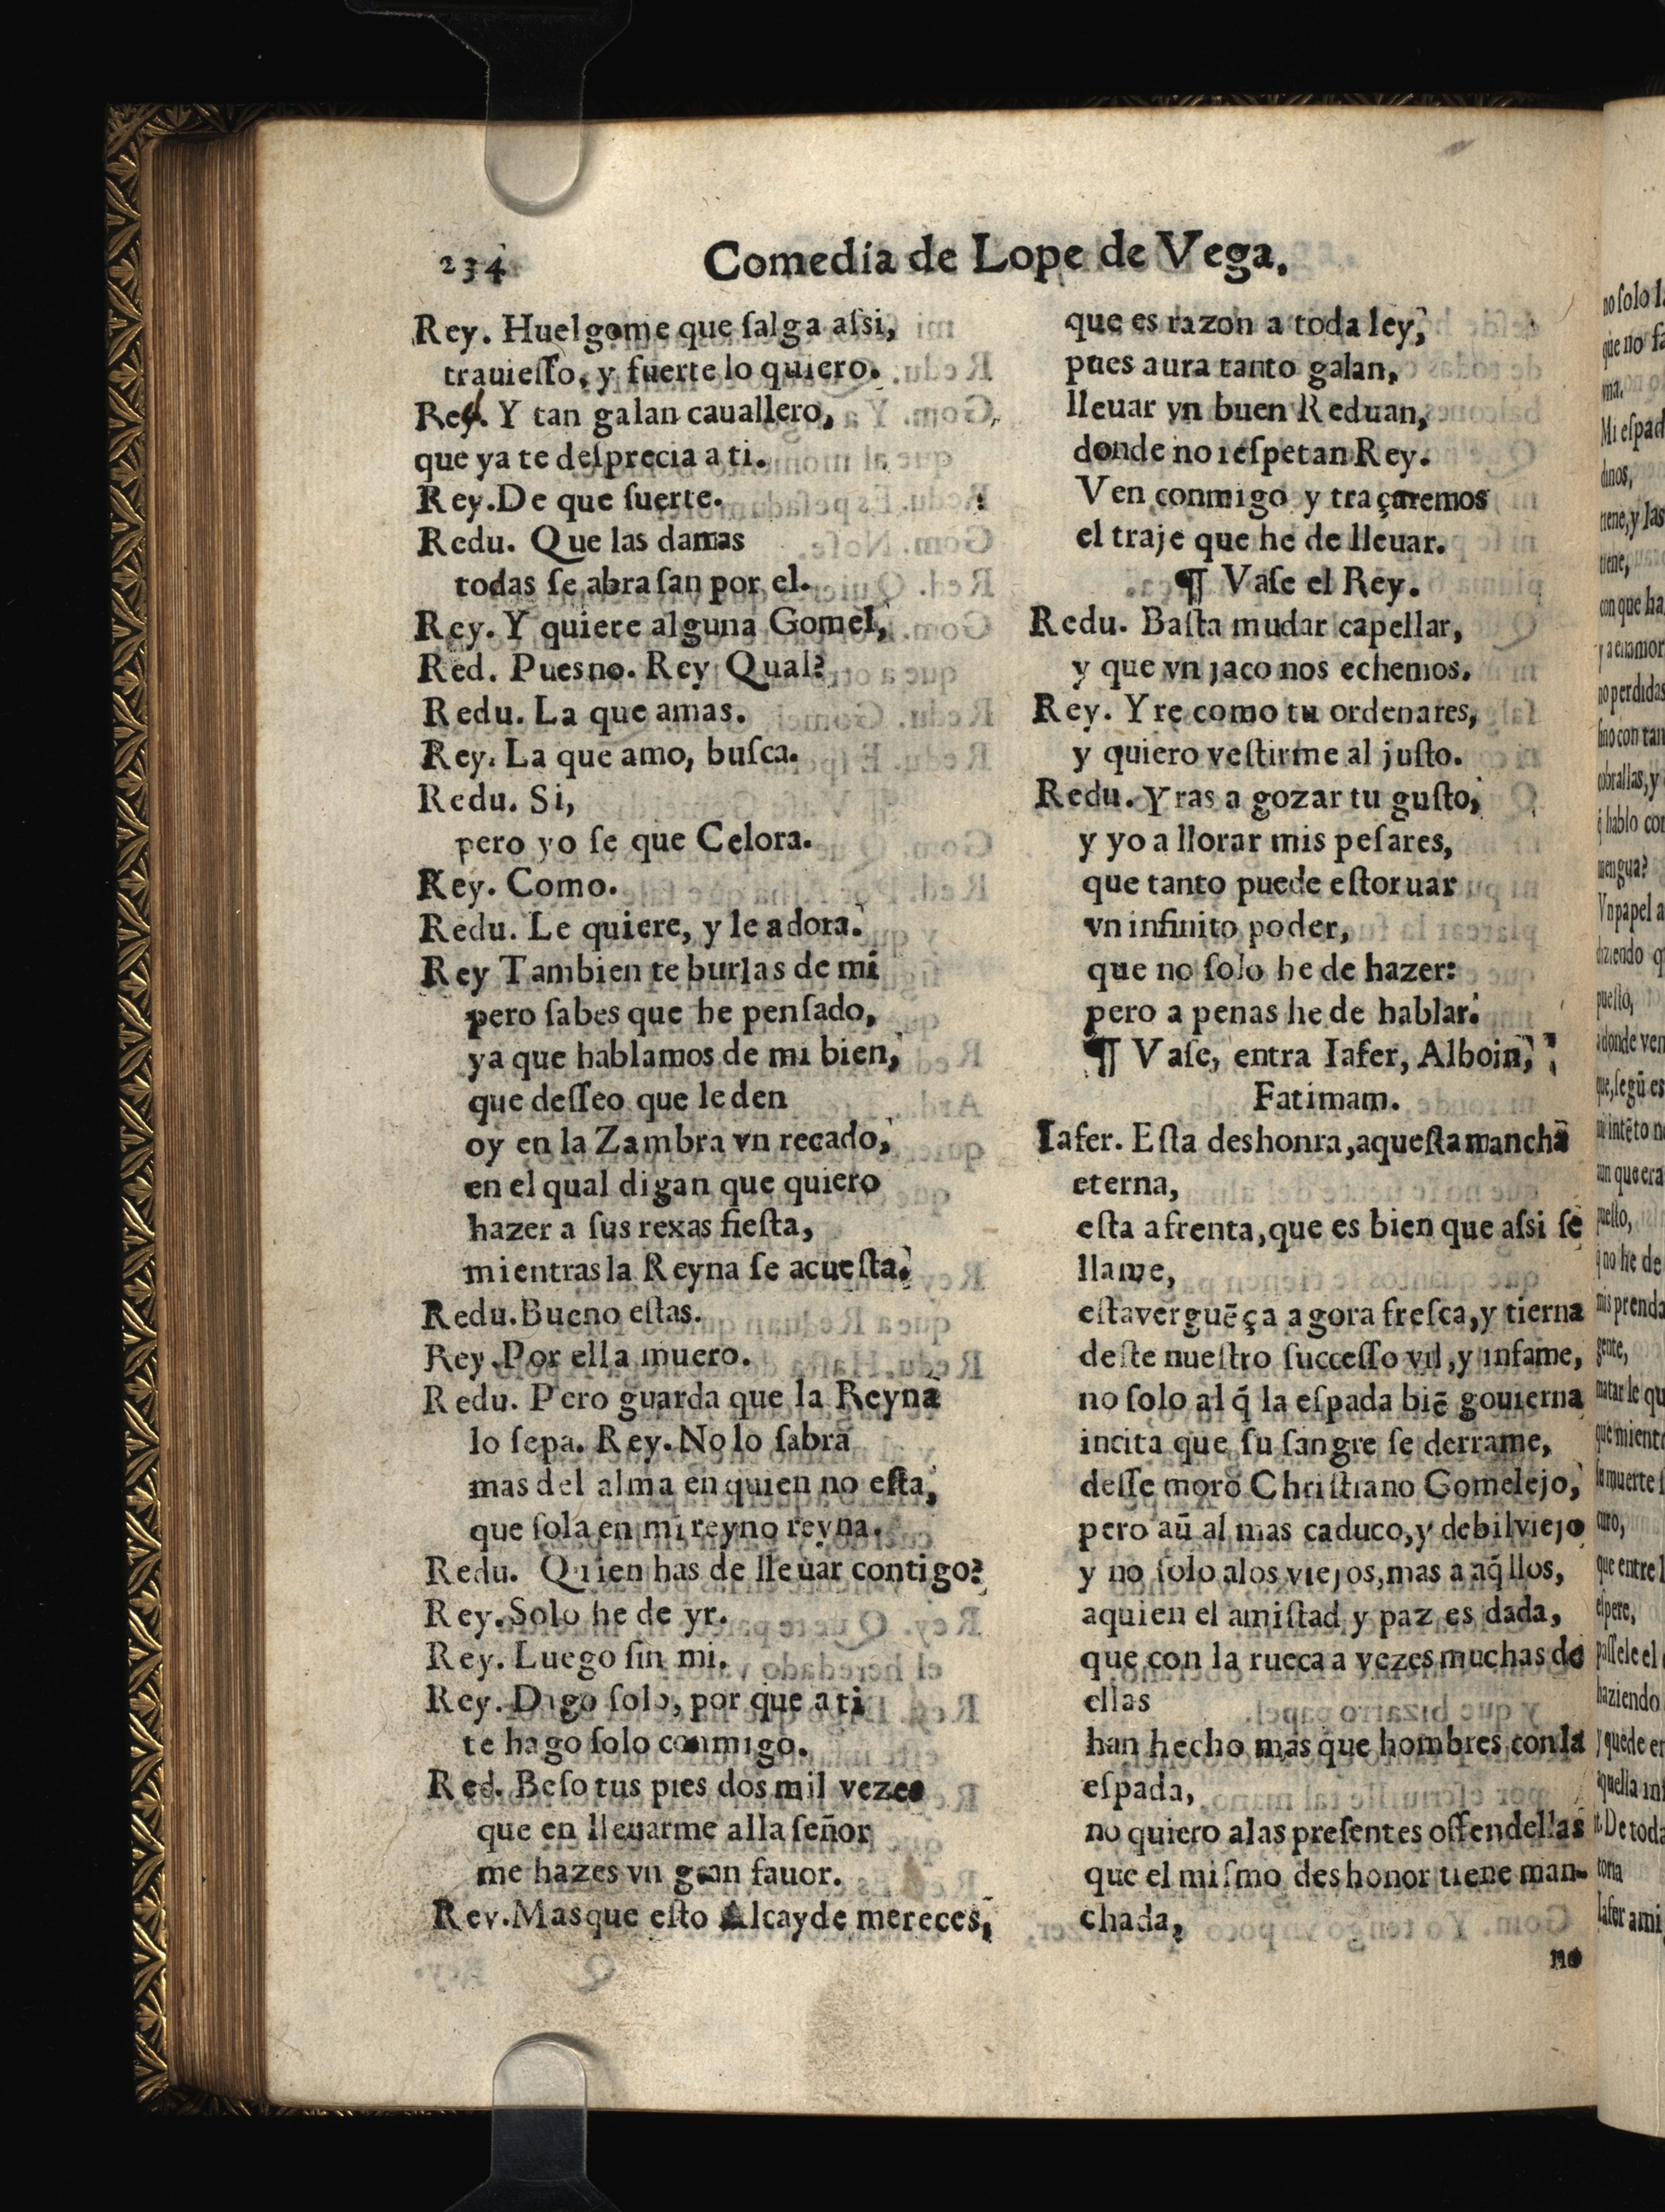 234
Comedia de Lope de Vega.
Rey. Huelgome que ſalga aſsi,
trauieſſo, y fuerte lo quiero.
Red. Y tan galan cauallero,
que ya te deſprecia a ti.
Rey. De que ſuerte.
Redu. Que las damas
todas ſe abraſan por el.
Rey. Y quiere alguna Gomel,
Red. Puesno. Rey Qual?
Redu. La que amas.
Rey. La que amo, buſca.
Redu. Si,
pero yo ſe que Celora.
Rey. Como.
Redu. Le quiere, y le adora.
Rey Tambien te burlas de mi
pero ſabes que he penſado,
ya que hablamos de mi bien,
que deſſeo que le den
oy en la Zambra vn recado,
en el qual digan que quiero
hazer a ſus rexas fieſta,
mientras la Reyna ſe acueſta.
Redu. Bueno eſtas.
Rey. Por ella muero.
Redu. Pero guarda que la Reyna
lo ſepa. Rey. No lo ſabra
mas del alma en quien no eſta,
que ſola en mi reyno reyna.
Redu. Quien has de lleuar contigo?
Rey. Solo he de yr.
Rey. Luego ſin mi.
Rey. Digo ſolo, por que a ti
te hago ſolo conmigo.
Red. Beſo tus pies dos mil vezes
que en lleuarme alla ſeñor
me hazes vn gran fauor.
Rey. Mas que eſto Alcayde mereces,
que es razon a toda ley,
pues aura tanto galan,
lleuar vn buen Reduan,
donde no reſpetan Rey.
Ven conmigo y traçaremos
el traje que he de lleuar.
¶ Vaſe el Rey.
Redu. Baſta mudar capellar,
y que vn jaco nos echemos.
Rey. Yre como tu ordenares,
y quiero veſtirme al juſto.
Redu. Yras a gozar tu guſto,
y yo a llorar mis peſares,
que tanto puede eſtoruar
vn infinito poder,
que no ſolo he de hazer:
pero a penas he de hablar.
¶ Vaſe, entra Iafer, Alboin,
Fatimam.
Iafer. Eſta deshonra, aqueſta mancha
eterna,
eſta afrenta, que es bien que aſsi ſe
llame,
eſta verguēça agora freſca, y tierna
deſte nueſtro ſucceſſo vil, y infame,
no ſolo al q̄ la eſpada biē gouierna
incita que ſu ſangre ſe derrame,
deſſe moro Chriſtiano Gomelejo,
pero aū al mas caduco, y debil viejo
y no ſolo alos viejos, mas a aq̄llos,
aquien el amiſtad y paz es dada,
que con la rueca a vezes muchas de
ellas
han hecho mas que hombres con la
eſpada,
no quiero alas preſentes offendellas
que el miſmo deshonor tiene man-
chada,
no